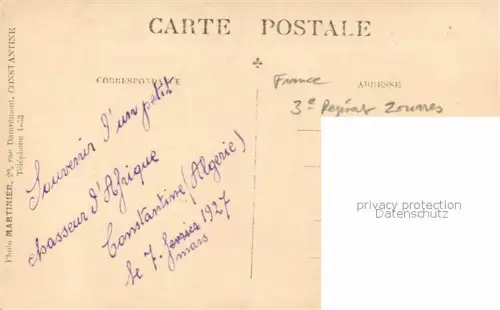 CARTE POSTALE
CORRESPONDANCE
ADRESSE
France
3e Régiment Zouaves
Souvenir d'un petit
chasseur d'Afrique
Constantine (Algérie)
le 7 fevrier 1927
mars
Photo MARTINIER, rue Damrémont, CONSTANTINE
Téléphone 1-53
protected
Datenschutz